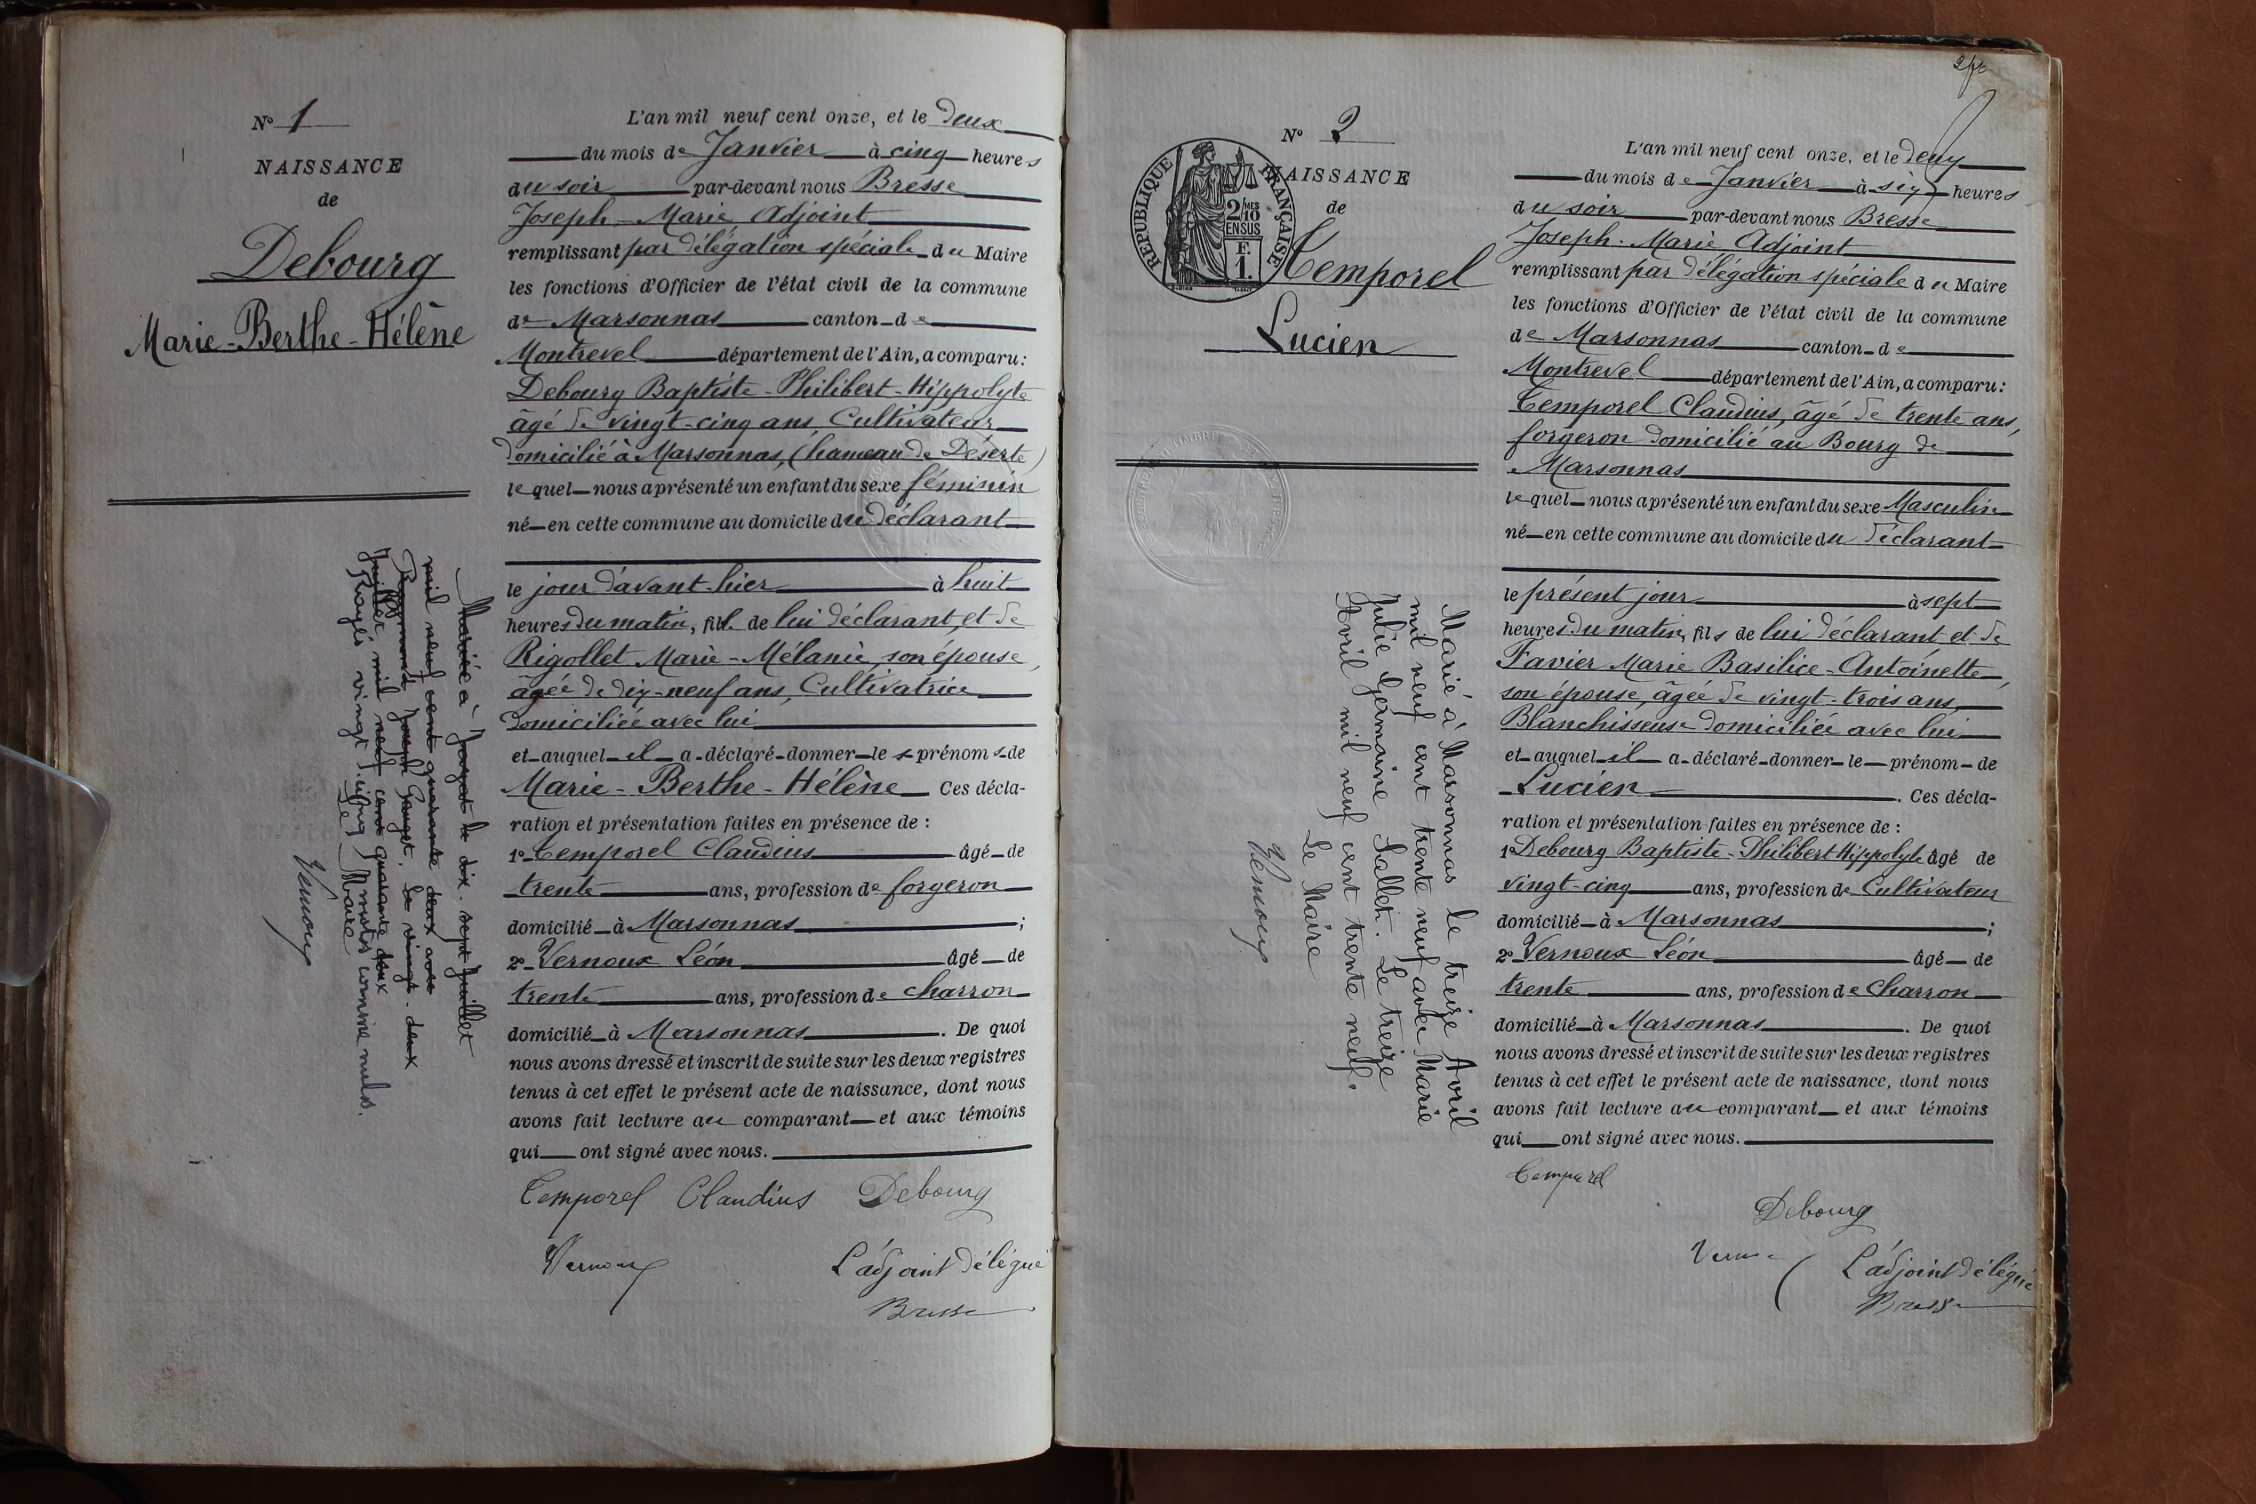 N° 1
NAISSANCE
de
Debourg
Marie-Berthe-Hélène
L'an mil neuf cent onze, et le Deux
du mois de Janvier à cinq heures
du soir par-devant nous Bresse
Joseph-Marie Adjoint
remplissant par délégation spéciale du Maire
les fonctions d'Officier de l'état civil de la commune
de Marsonnas canton de
Montrevel département de l'Ain, a comparu:
Debourg Baptiste-Philibert-Hippolyte
âgé de vingt-cinq ans, Cultivateur
domicilié à Marsonnas, (hameau de Déserte)
lequel nous a présenté un enfant du sexe féminin
né en cette commune au domicile du déclarant
le jour d'avant-hier à huit
heures du matin, fil. de lui déclarant, et de
Rigollet Marie-Mélanie, son épouse,
âgée de dix-neuf ans, Cultivatrice
domiciliée avec lui
et auquel il a déclaré donner les prénoms de
Marie-Berthe-Hélène Ces décla-
ration et présentation faites en présence de :
1° Temporel Claudius âgé de
trente ans, profession de forgeron
domicilié à Marsonnas ;
2° Vernoux Léon âgé de
trente ans, profession de Charron
domicilié à Marsonnas. De quoi
nous avons dressé et inscrit de suite sur les deux registres
tenus à cet effet le présent acte de naissance, dont nous
avons fait lecture au comparant et aux témoins
qui ont signé avec nous.
Temporel Claudius Debourg
Vernoux L'adjoint délégué
Bresse
Mariée à le dix-sept Juillet
mil neuf cent quarante deux avec
Joseph Gauget. le vingt-deux
Juillet mil neuf cent quarante deux
Rayés vingt-cinq mots comme nuls.
Le Maire
Vernoux
2ft
N° 2
NAISSANCE
de
Temporel
Lucien
REPUBLIQUE FRANÇAISE
2/10
MES
EN SUS
F.
1.
L'an mil neuf cent onze, et le deux
du mois de Janvier à six heures
du soir par-devant nous Bresse
Joseph-Marie Adjoint
remplissant par délégation spéciale du Maire
les fonctions d'Officier de l'état civil de la commune
de Marsonnas canton de
Montrevel département de l'Ain, a comparu:
Temporel Claudius, âgé de trente ans,
forgeron domicilié au Bourg de
Marsonnas
lequel nous a présenté un enfant du sexe Masculin
né en cette commune au domicile du déclarant
le présent jour à sept
heures du matin, fils de lui déclarant et de
Favier Marie Basilice-Antoinette,
son épouse, âgée de vingt-trois ans,
Blanchisseuse domiciliée avec lui
et auquel il a déclaré donner le prénom de
Lucien. Ces décla-
ration et présentation faites en présence de :
1° Debourg Baptiste-Philibert Hippolyte âgé de
vingt-cinq ans, profession de Cultivateur
domicilié à Marsonnas ;
2° Vernoux Léon âgé de
trente ans, profession de Charron
domicilié à Marsonnas. De quoi
nous avons dressé et inscrit de suite sur les deux registres
tenus à cet effet le présent acte de naissance, dont nous
avons fait lecture au comparant et aux témoins
qui ont signé avec nous.
Temporel
Debourg
Vernoux L'adjoint délégué
Bresse
Marié à Marsonnas le treize Avril
mil neuf cent trente neuf avec Marie
Julie Germaine Sallet. Le treize
Avril mil neuf cent trente neuf.
Le Maire
Vernoux